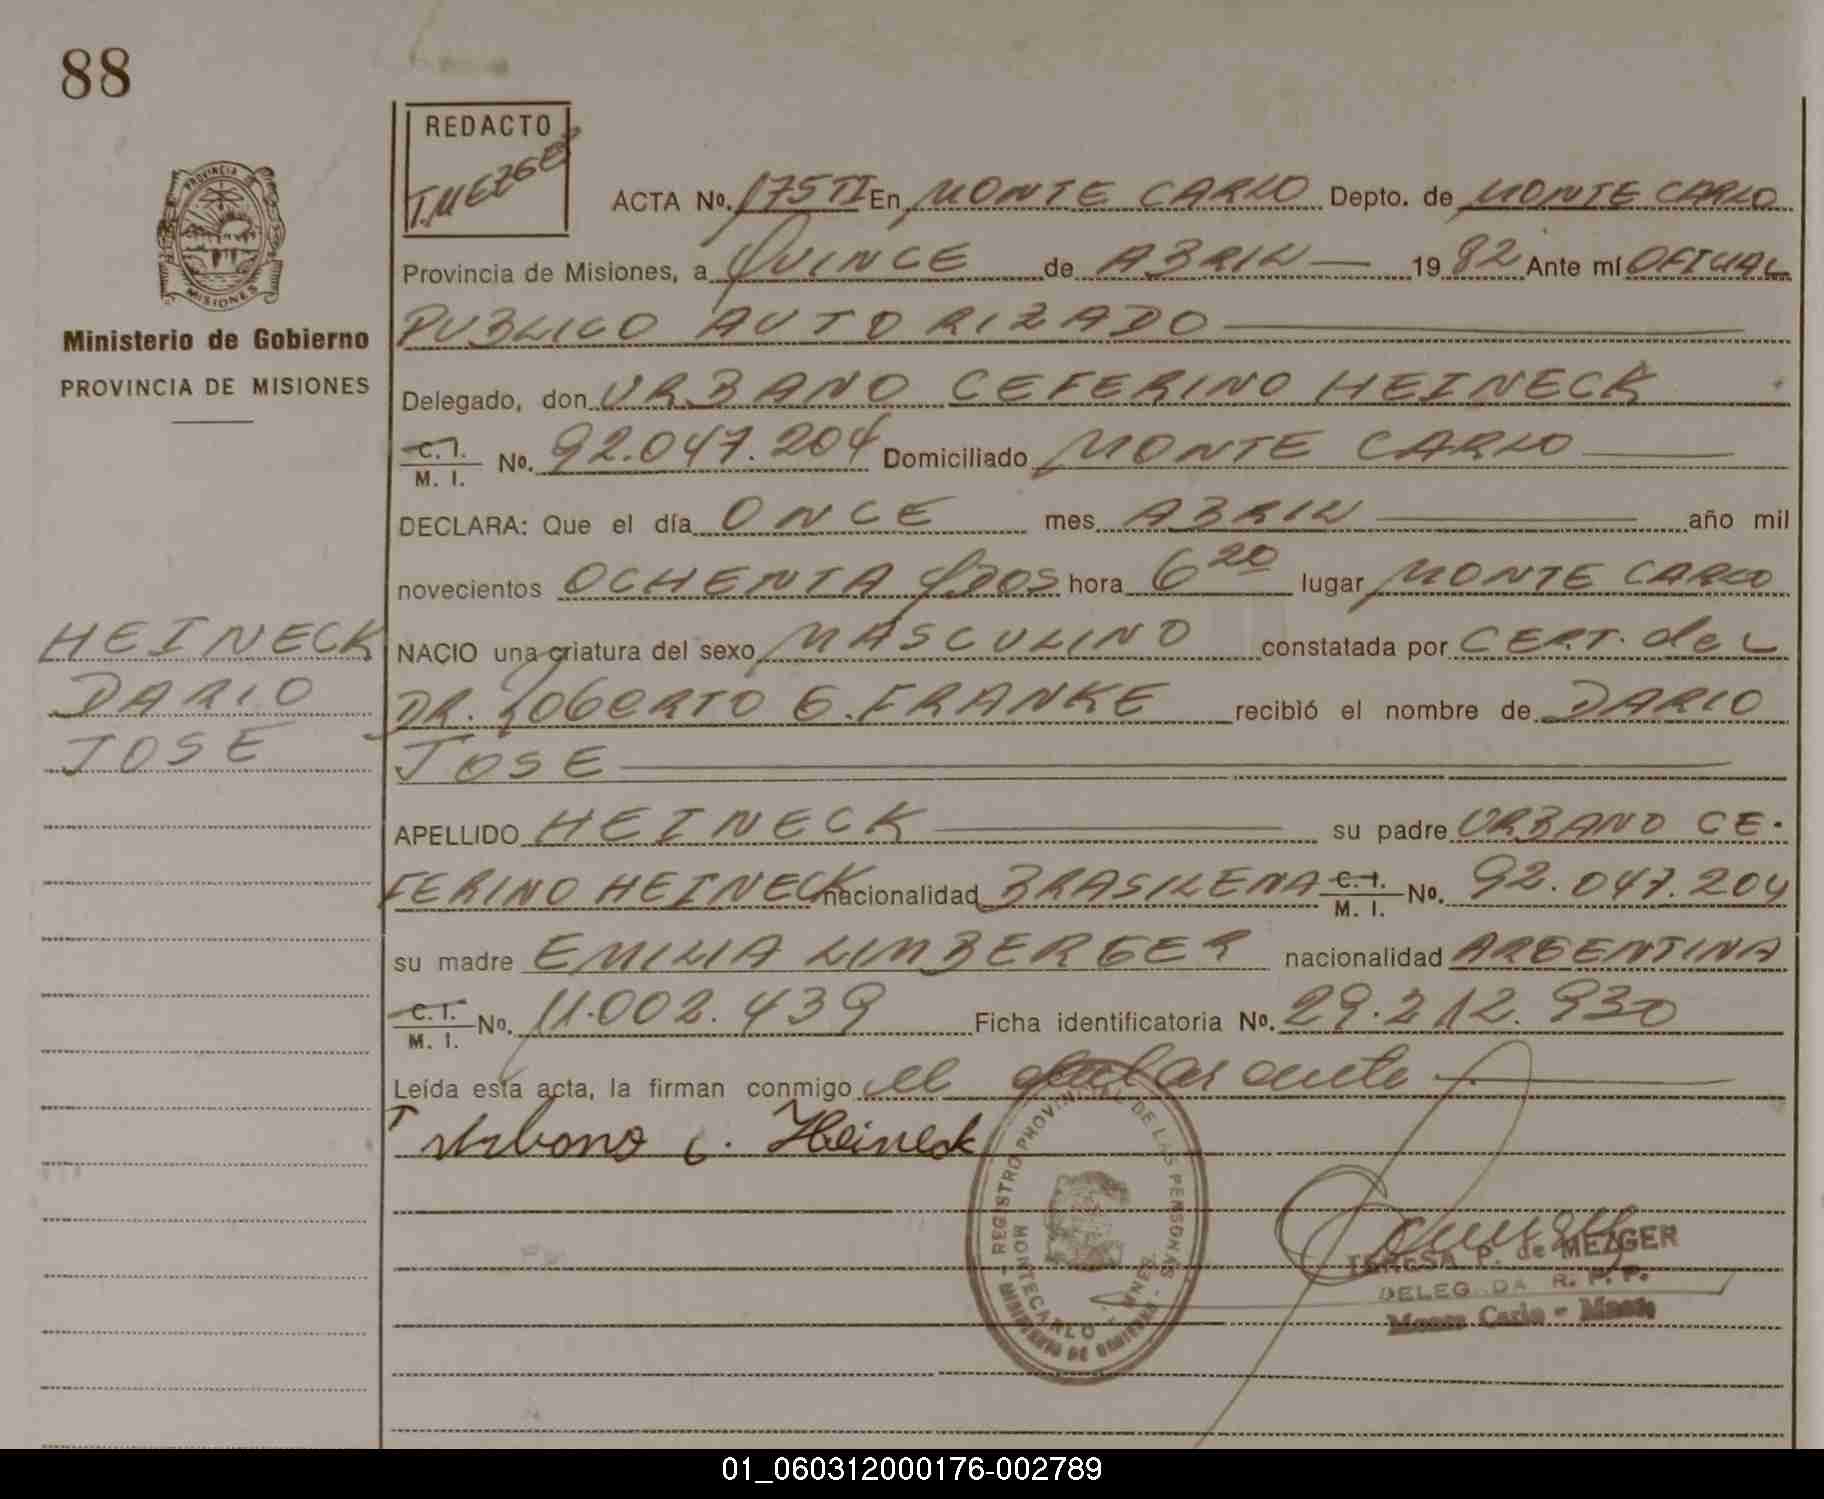 88
REDACTO
T. MEZGER
PROVINCIA DE
MISIONES
Ministerio de Gobierno
PROVINCIA DE MISIONES
ACTA No. 175 TI En MONTE CARLO Depto. de MONTE CARLO
Provincia de Misiones, a QUINCE de ABRIL — 1982 Ante mí OFICIAL
PUBLICO AUTORIZADO
Delegado, don URBANO CEFERINO HEINECK
C. I.
M. I. No. 92.047.204 Domiciliado MONTE CARLO
DECLARA: Que el día ONCE mes ABRIL año mil
novecientos OCHENTA y DOS hora 6 20 lugar MONTE CARLO
HEINECK
DARIO
JOSE
NACIO una criatura del sexo MASCULINO constatada por CERT. del
DR. ROBERTO E. FRANKE recibió el nombre de DARIO
JOSE
APELLIDO HEINECK su padre URBANO CE-
FERINO HEINECK nacionalidad BRASILENA C. I. M. I. No. 92.047.204
su madre EMILIA LIMBERGER nacionalidad ARGENTINA
C. I.
M. I. No. 11.002.439 Ficha identificatoria No. 29.212.930
Leída esta acta, la firman conmigo el declarante
Urbano C. Heineck
REGISTRO PROVINCIAL DE LAS PERSONAS
MONTECARLO - MNES.
MINISTERIO DE GOBIERNO
TERESA P. de MEZGER
DELEGADA R. P. P.
Monte Carlo - Mnes.
01_060312000176-002789